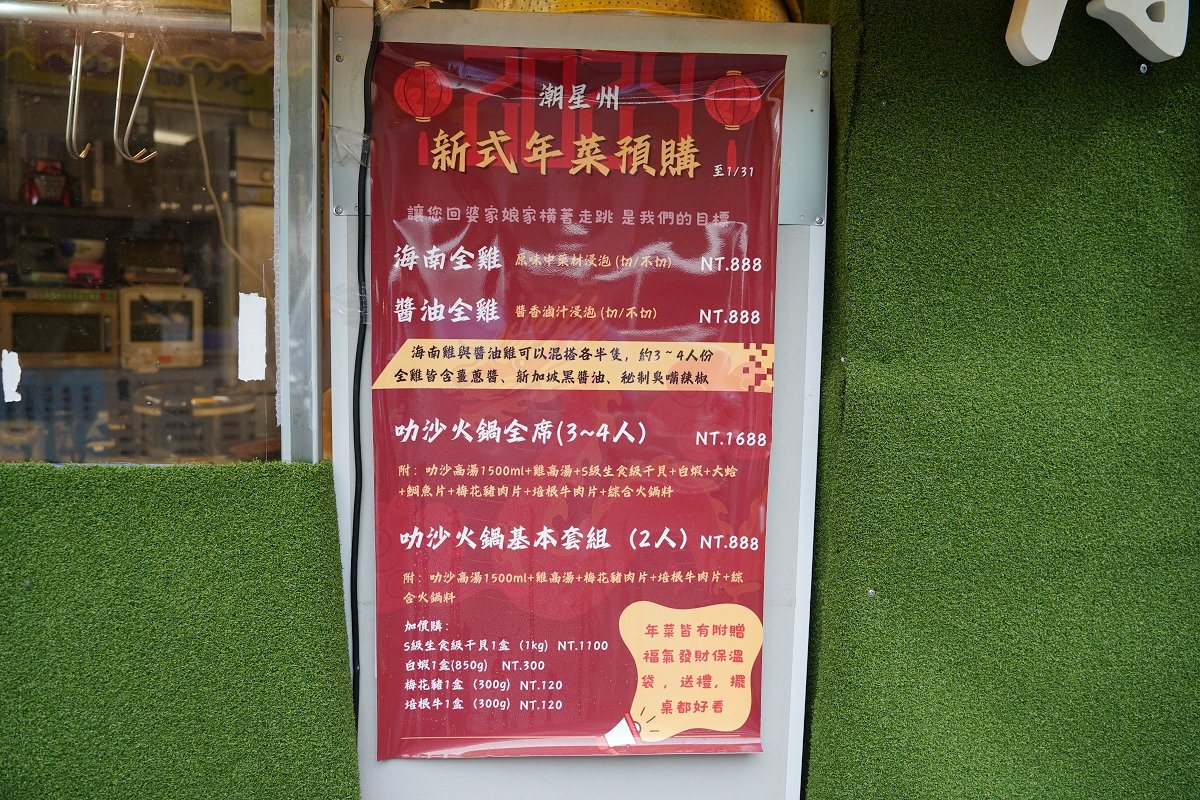 2024
潮星州
新式年菜預購 至1/31
讓您回婆家娘家橫著走跳 是我們的目標
海南全雞 原味中藥材浸泡(切/不切) NT.888
醬油全雞 醬香滷汁浸泡(切/不切) NT.888
海南雞與醬油雞可以混搭各半隻，約3~4人份
全雞皆含薑蔥醬、新加坡黑醬油、秘制臭嘴辣椒
叻沙火鍋全席(3~4人) NT.1688
附：叻沙高湯1500ml+雞高湯+S級生食級干貝+白蝦+大蛤
+鯛魚片+梅花豬肉片+培根牛肉片+綜合火鍋料
叻沙火鍋基本套組（2人）NT.888
附：叻沙高湯1500ml+雞高湯+梅花豬肉片+培根牛肉片+綜
合火鍋料
加價購：
S級生食級干貝1盒（1kg）NT.1100
白蝦1盒(850g) NT.300
梅花豬1盒（300g）NT.120
培根牛1盒（300g）NT.120
年菜皆有附贈
福氣發財保溫
袋，送禮，擺
桌都好看